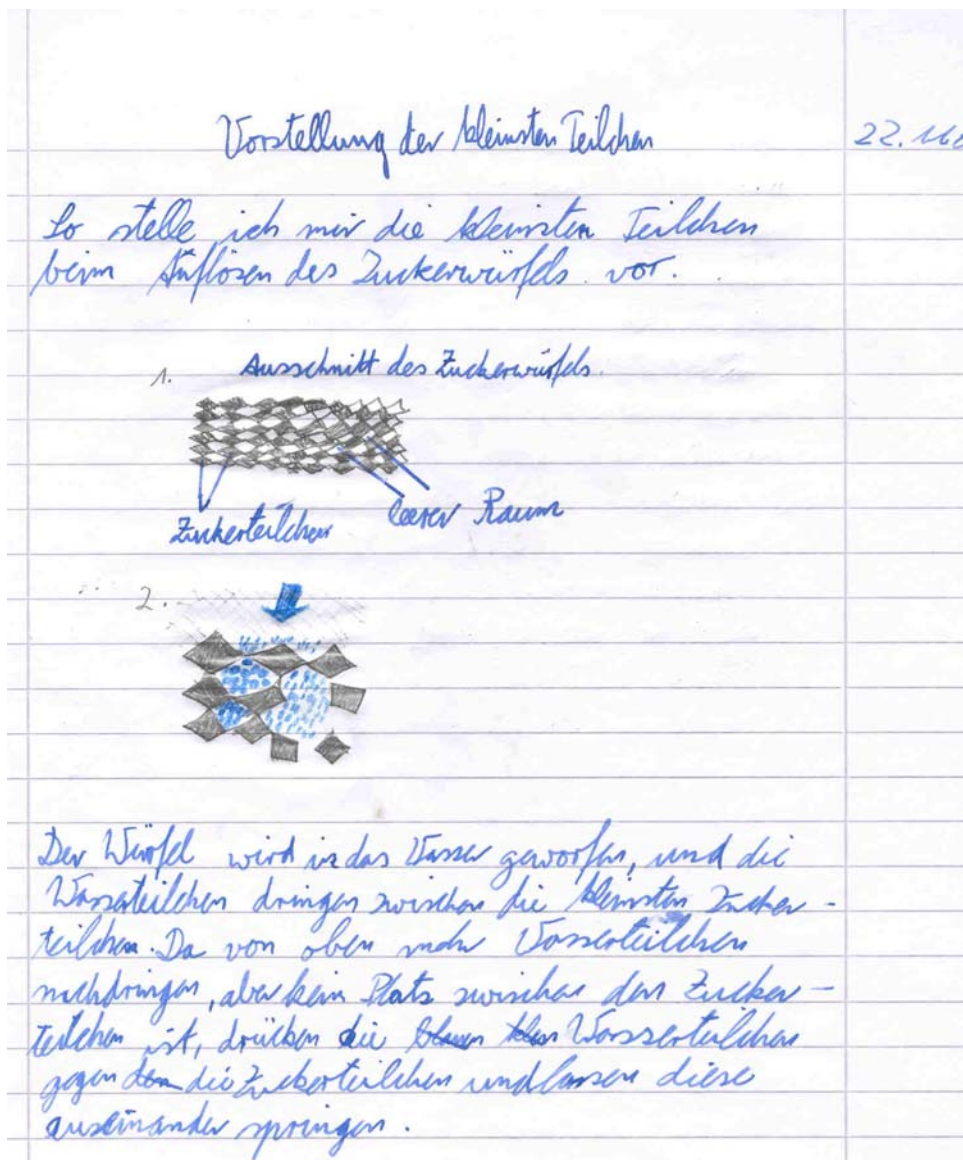 Vorstellung der kleinsten Teilchen
22.
So stelle ich mir die kleinsten Teilchen
beim Auflösen des Zuckerwürfels vor.
1. Ausschnitt des Zuckerwürfels.
Zuckerteilchen
leerer Raum
2.
Der Würfel wird in das Wasser geworfen, und die
Wasserteilchen dringen zwischen die kleinsten Zucker-
teilchen. Da von oben mehr Wasserteilchen
nachdringen, aber kein Platz zwischen den Zucker-
teilchen ist, drücken die Wasserteilchen
gegen die Zuckerteilchen und lassen diese
auseinander springen.